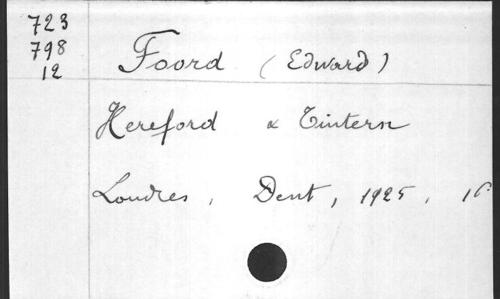 723
798
12
Foord (Edward)
Hereford & Tintern
Londres, Dent, 1925, 16°